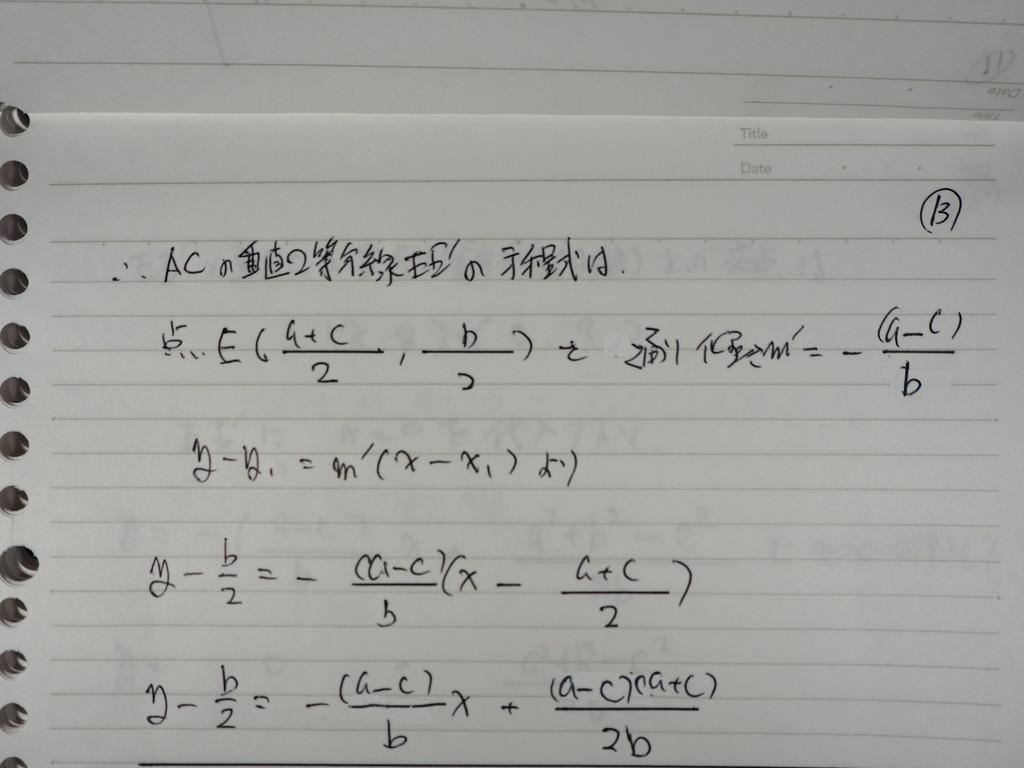 Title
Date
⑬
∴ ACの垂直2等分線EE'の方程式は.
点 E(\frac{a+c}{2}, \frac{b}{2}) と 傾き m' = -\frac{(a-c)}{b}
y-y₁ = m'(x-x₁) より
y - \frac{b}{2} = -\frac{(a-c)}{b}(x - \frac{a+c}{2})
y - \frac{b}{2} = -\frac{(a-c)}{b}x + \frac{(a-c)(a+c)}{2b}